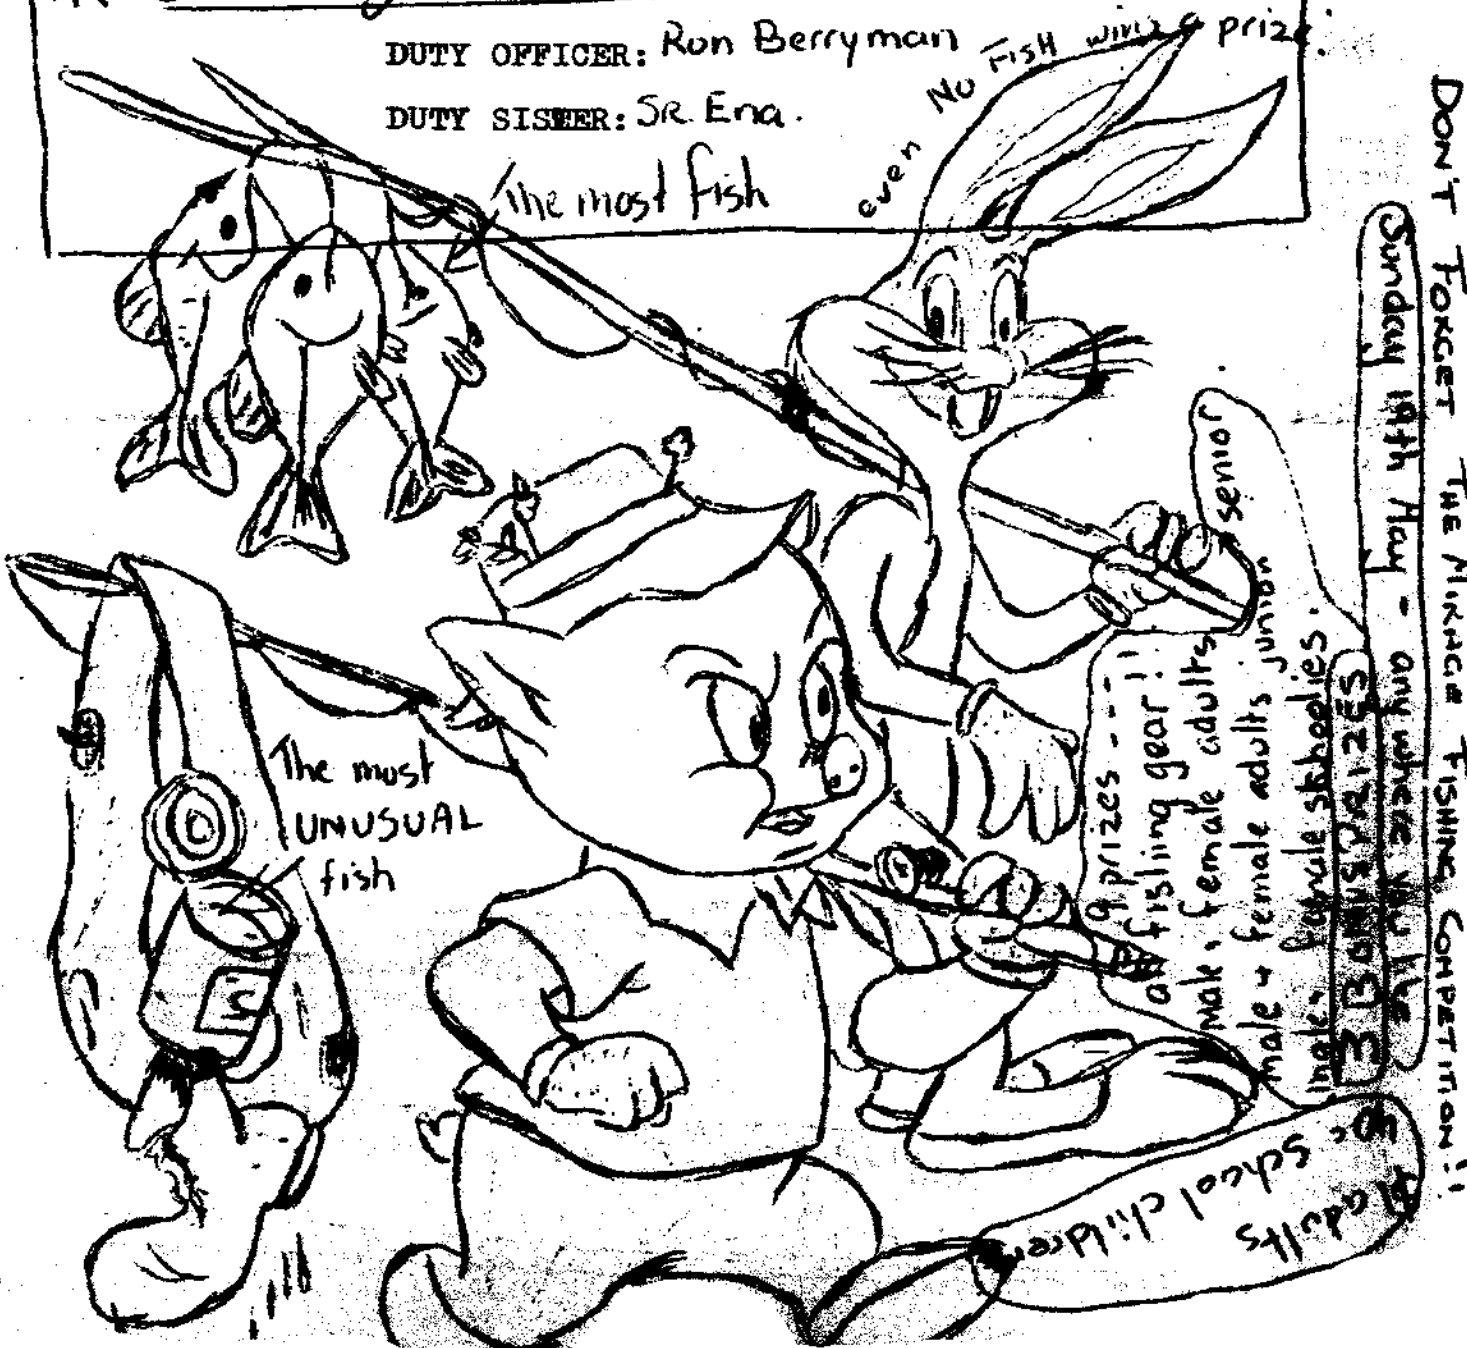 DUTY OFFICER: Ron Berryman
DUTY SISTER: SR. Ena.
even No FISH wins a prize.
The most fish
The most
UNUSUAL
fish
DON'T FORGET THE MIRAGE FISHING COMPETITION!!
Sunday 19th May - anywhere you like
9 prizes ---
all fishing gear!!
male, female adults senior
male & female adults junior
male, female skhoolies.
3 BONUS PRIZES
Adults
& school children